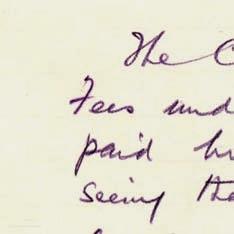 The C
Fees und
paid
seeing the